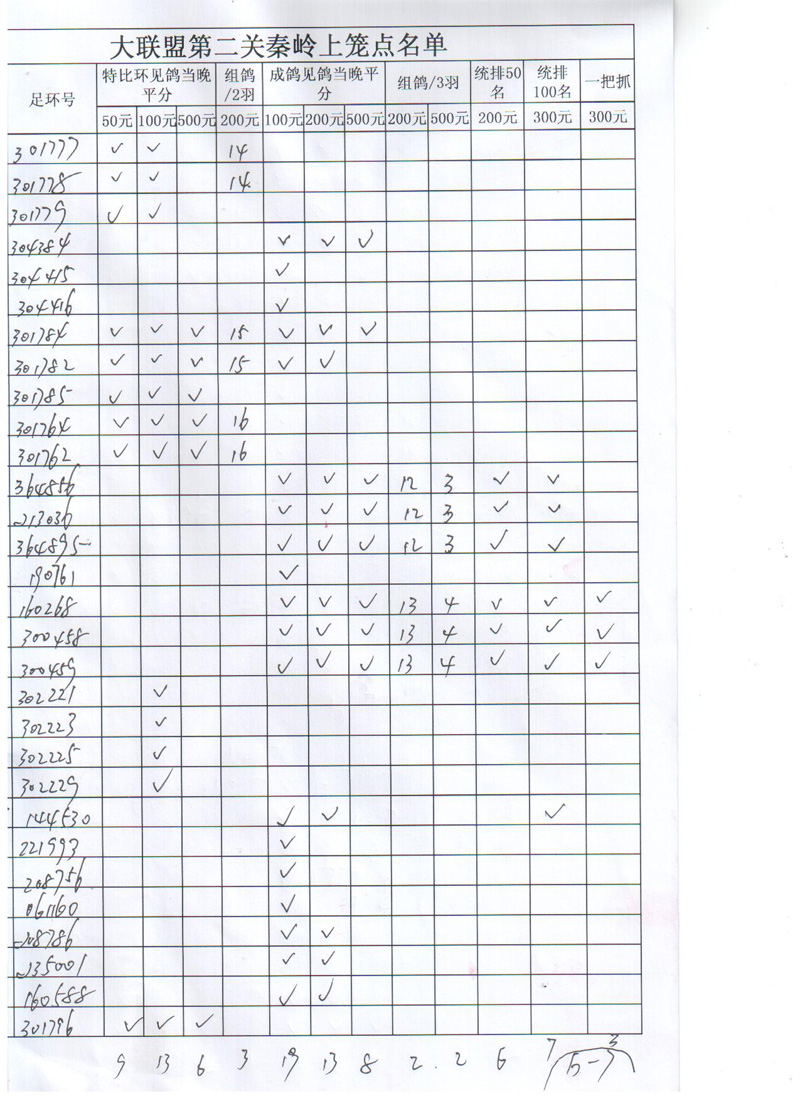 大联盟第二关秦岭上笼点名单
足环号 特比环见鸽当晚平分 组鸽/2羽 成鸽见鸽当晚平分 组鸽/3羽 统排50名 统排100名 一把抓
50元 100元 500元 200元 100元 200元 500元 200元 500元 200元 300元 300元
301777 ✓ ✓ 14
301778 ✓ ✓ 14
301779 ✓ ✓
304384 ✓ ✓ ✓
304415 ✓
304416 ✓
301784 ✓ ✓ ✓ 15 ✓ ✓ ✓
301782 ✓ ✓ ✓ 15 ✓ ✓
301785 ✓ ✓ ✓
301764 ✓ ✓ ✓ 16
301762 ✓ ✓ ✓ 16
364856 ✓ ✓ ✓ 12 3 ✓ ✓
213036 ✓ ✓ ✓ 12 3 ✓ ✓
364895 ✓ ✓ ✓ 12 3 ✓ ✓
190761 ✓
160268 ✓ ✓ ✓ 13 4 ✓ ✓ ✓
300458 ✓ ✓ ✓ 13 4 ✓ ✓ ✓
300459 ✓ ✓ ✓ 13 4 ✓ ✓ ✓
302221 ✓
302223 ✓
302225 ✓
302229 ✓
144530 ✓ ✓ ✓
221993 ✓
208756 ✓
061160 ✓
208786 ✓ ✓
235001 ✓ ✓
160588 ✓ ✓
301796 ✓ ✓ ✓
9 13 6 3 19 13 8 2 . 2 6 7 3